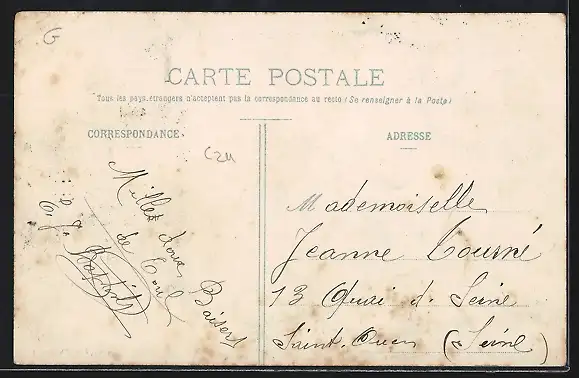 G
CARTE POSTALE
Tous les pays étrangers n'acceptent pas la correspondance au recto (Se renseigner à la Poste)
CORRESPONDANCE
ADRESSE
C24
Milles doux
Baisers
de
Mademoiselle
Jeanne Tourné
13 Quai d. Seine
Saint-Ouen (Seine)